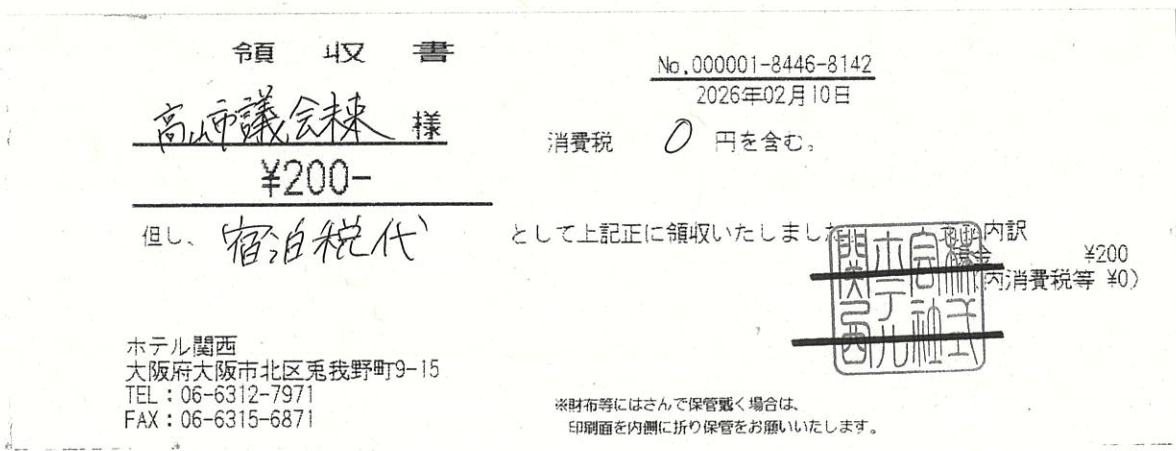 領収書
No.000001-8446-8142
2026年02月10日
高山市議会未来 様
消費税 0 円を含む。
¥200-
但し、宿泊税代 として上記正に領収いたしました
内訳
現金 ¥200
(内消費税等 ¥0)
株式会社ホテル関西
ホテル関西
大阪府大阪市北区兎我野町9-15
TEL:06-6312-7971
FAX:06-6315-6871
※財布等にはさんで保管戴く場合は、
印刷面を内側に折り保管をお願いいたします。